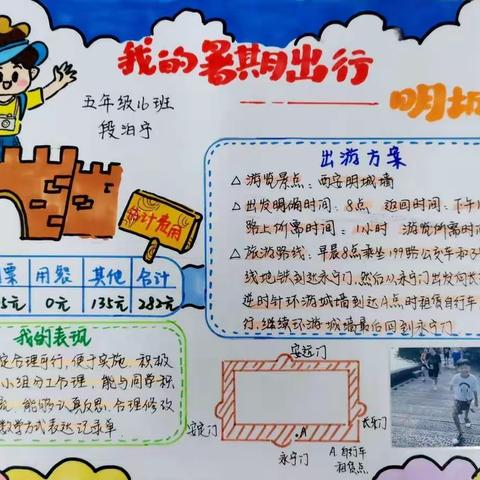 我的暑期出行
明城
五年级16班
段泊宇
出游方案
△游览景点：西安明城墙
△出发明确时间：8点 返回时间：下午
路上所需时间：1小时 游览所需时间
△旅游路线：早晨8点乘坐199路公交车和3
线地铁到达永宁门,然后从永宁门出发向长
逆时针环游城墙到达A点时租赁自行车
行,继续环游城墙最后回到永宁门
合计费用
票 用餐 其他 合计
5元 0元 135元 282元
我的表现
定合理可行,便于实施。积极
小组分工合理,能与同学积
流,能够认真反思,合理修改
数学方式表达记录单.
安远门
安定门
长乐门
A
永宁门
A.自行车
租赁点